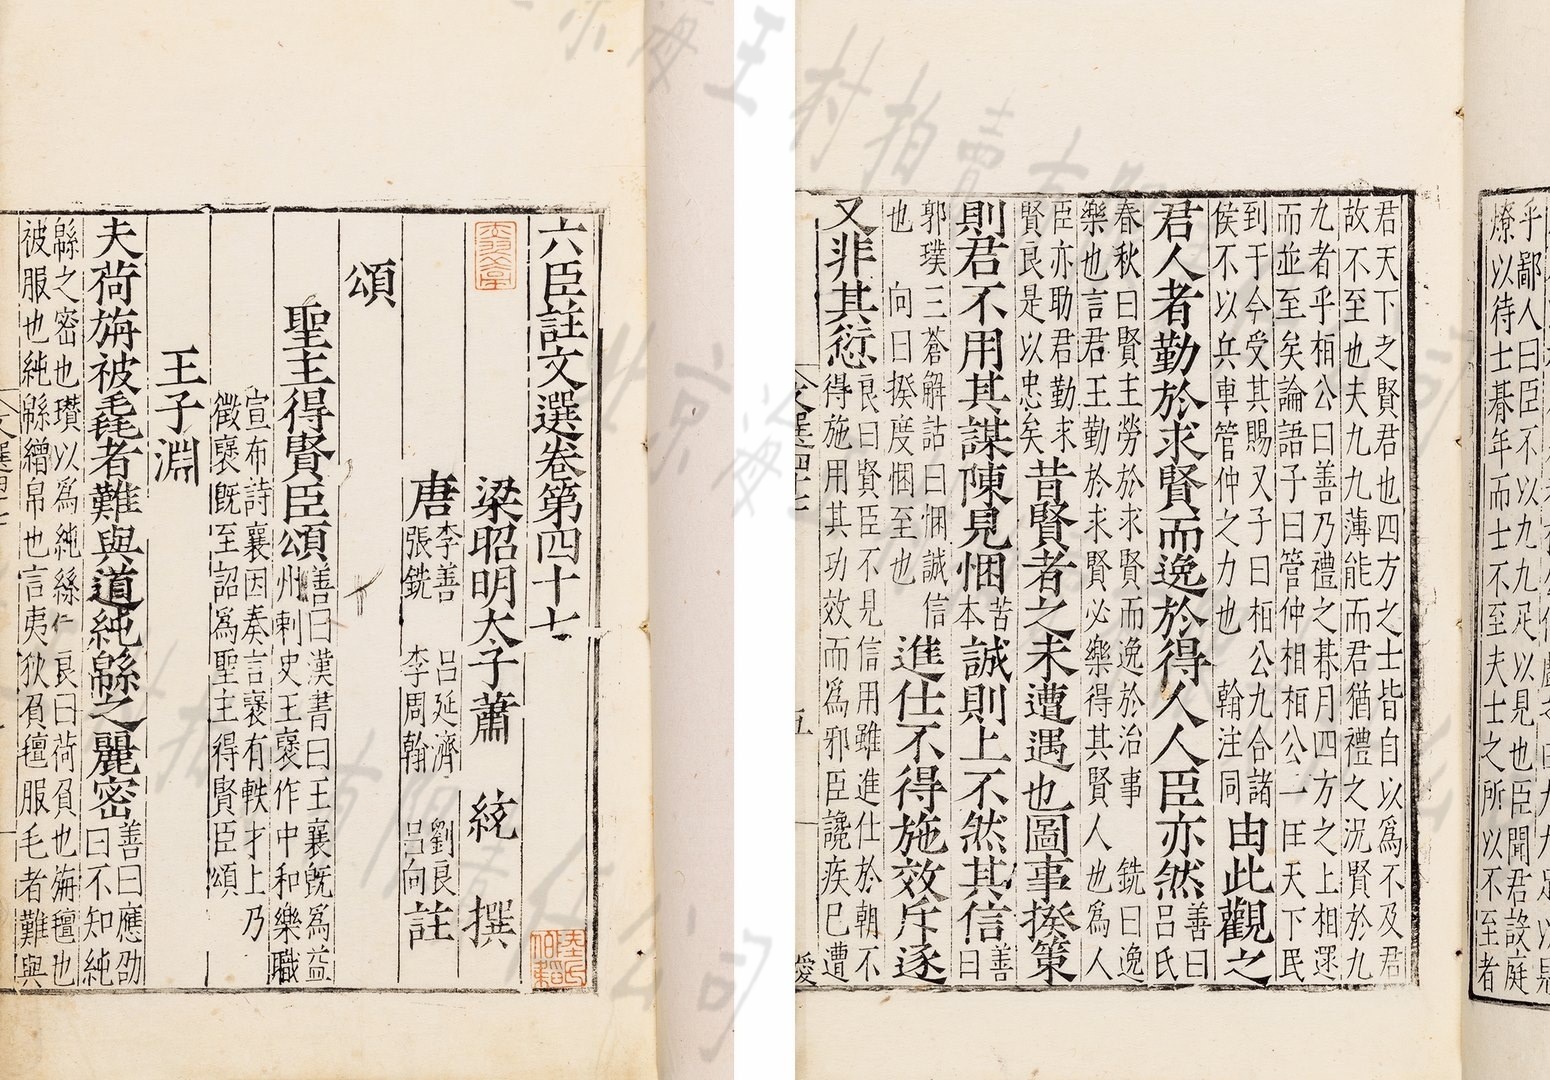 六臣註文選卷第四十七
梁昭明太子蕭 統 撰
唐 李善 呂延濟 劉良
張銑 李周翰 呂向 註
頌
聖主得賢臣頌 善曰漢書曰王襄旣爲益
州刺史王襃作中和樂職
宣布詩襄因奏言襃有軼才上乃
徵襃旣至詔爲聖主得賢臣頌
王子淵
夫荷旃被毳者難與道純緜之麗密 善曰應劭
曰不知純
緜之密也瓚以爲純絲仁 良曰荷負也旃氊也
被服也純緜繒帛也言夷狄負氊服毛者難與
乎鄙人曰臣不以九九足以見也臣聞君設庭
燎以待士朞年而士不至夫士之所以不至者
君天下之賢君也四方之士皆自以爲不及君
故不至也夫九九薄能而君猶禮之況賢於九
九者乎桓公曰善乃禮之朞月四方之上相遝
而並至矣論語子曰管仲相桓公一匡天下民
到于今受其賜又子曰桓公九合諸
侯不以兵車管仲之力也 翰注同
由此觀之
君人者勤於求賢而逸於得人人臣亦然 善曰
呂氏
春秋曰賢主勞於求賢而逸於治事 銑曰逸
樂也言君王勤於求賢必樂得其賢人也爲人
臣亦助君勤求
賢良是以忠矣
昔賢者之未遭遇也圖事揆策
則君不用其謀陳見悃 苦
本 誠則上不然其信 善
曰
郭璞三蒼解詁曰悃誠信
也 向曰揆度悃至也
進仕不得施效斥逐
又非其愆 良曰賢臣不見信用雖進仕於朝不
得施用其功效而爲邪臣讒疾已遭
五
北京海王村拍賣有限責任公司